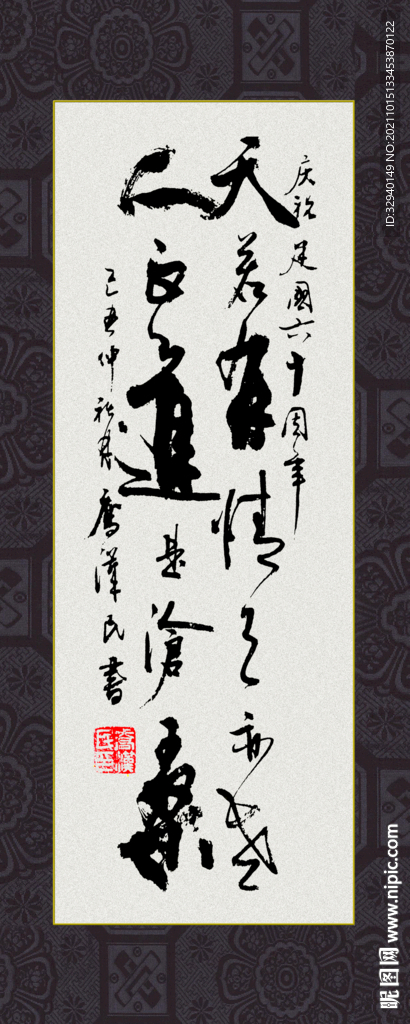 庆祝建国六十周年
天若有情天亦老
人间正道是沧桑
己丑仲秋月 鹰汉民书
昵图网 www.nipic.com
ID:32940149 NO:20211015133453870122